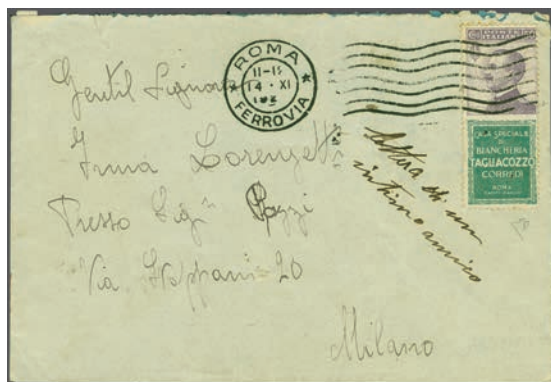 ROMA
11-15
14 · XI
FERROVIA
POSTE ITALIANE
CASA SPECIALE
DI
BIANCHERIA
TAGLIACOZZO
CORREDI
ROMA
Gentil Signora
Irma Lorenzetti
Presso Sigra Pozzi
Via Stoppani 20
Milano
lettera di un
intimo amico